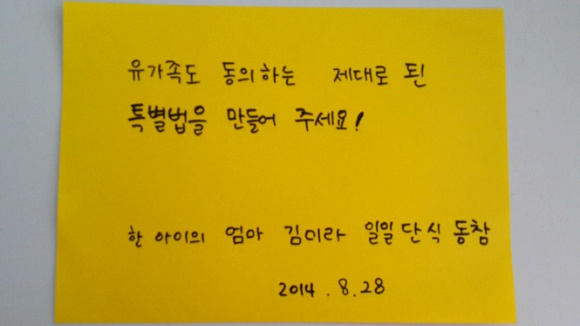 유가족도 동의하는 제대로 된
특별법을 만들어 주세요!
한 아이의 엄마 김미라 일일단식 동참
2014.8.28